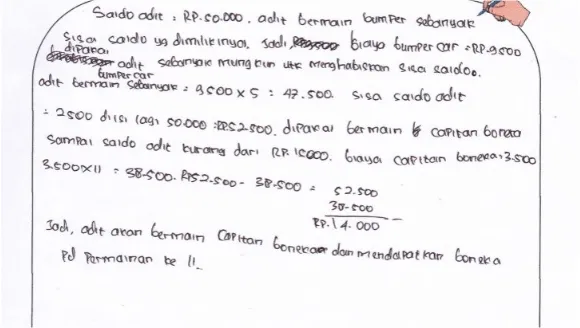 Saldo adit : RP.50.000. adit bermain bumper sebanyak
sisa saldo yg dimilikinya. Jadi, biaya bumper car = RP.9500
dipakai adit sebanyak mungkin utk menghabiskan sisa saldo.
adit bermain bumper car sebanyak = 9500 x 5 = 47.500. sisa saldo adit
= 2500 diisi lagi 50.000 = RP52.500. dipakai bermain capitan boneka
sampai saldo adit kurang dari RP.15000. biaya capitan boneka = 3.500
3.500 x 11 = 38.500. RP52.500 - 38.500 = 52.500
38.500 -
RP.14.000
Jadi, adit akan bermain capitan boneka dan mendapatkan boneka
pd permainan ke 11.